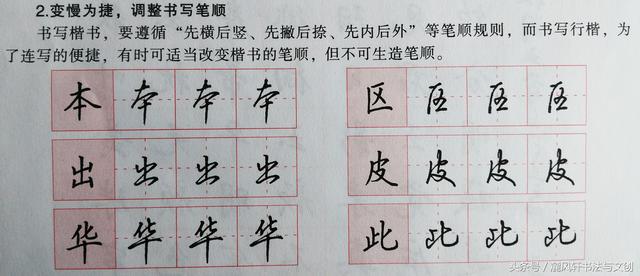 2.变慢为捷，调整书写笔顺
书写楷书，要遵循“先横后竖、先撇后捺、先内后外”等笔顺规则，而书写行楷，为
了连写的便捷，有时可适当改变楷书的笔顺，但不可生造笔顺。
本 本 本 本 区 区 区 区
出 出 出 出 皮 皮 皮 皮
华 华 华 华 此 此 此 此
头条号／麓风轩书法与文创